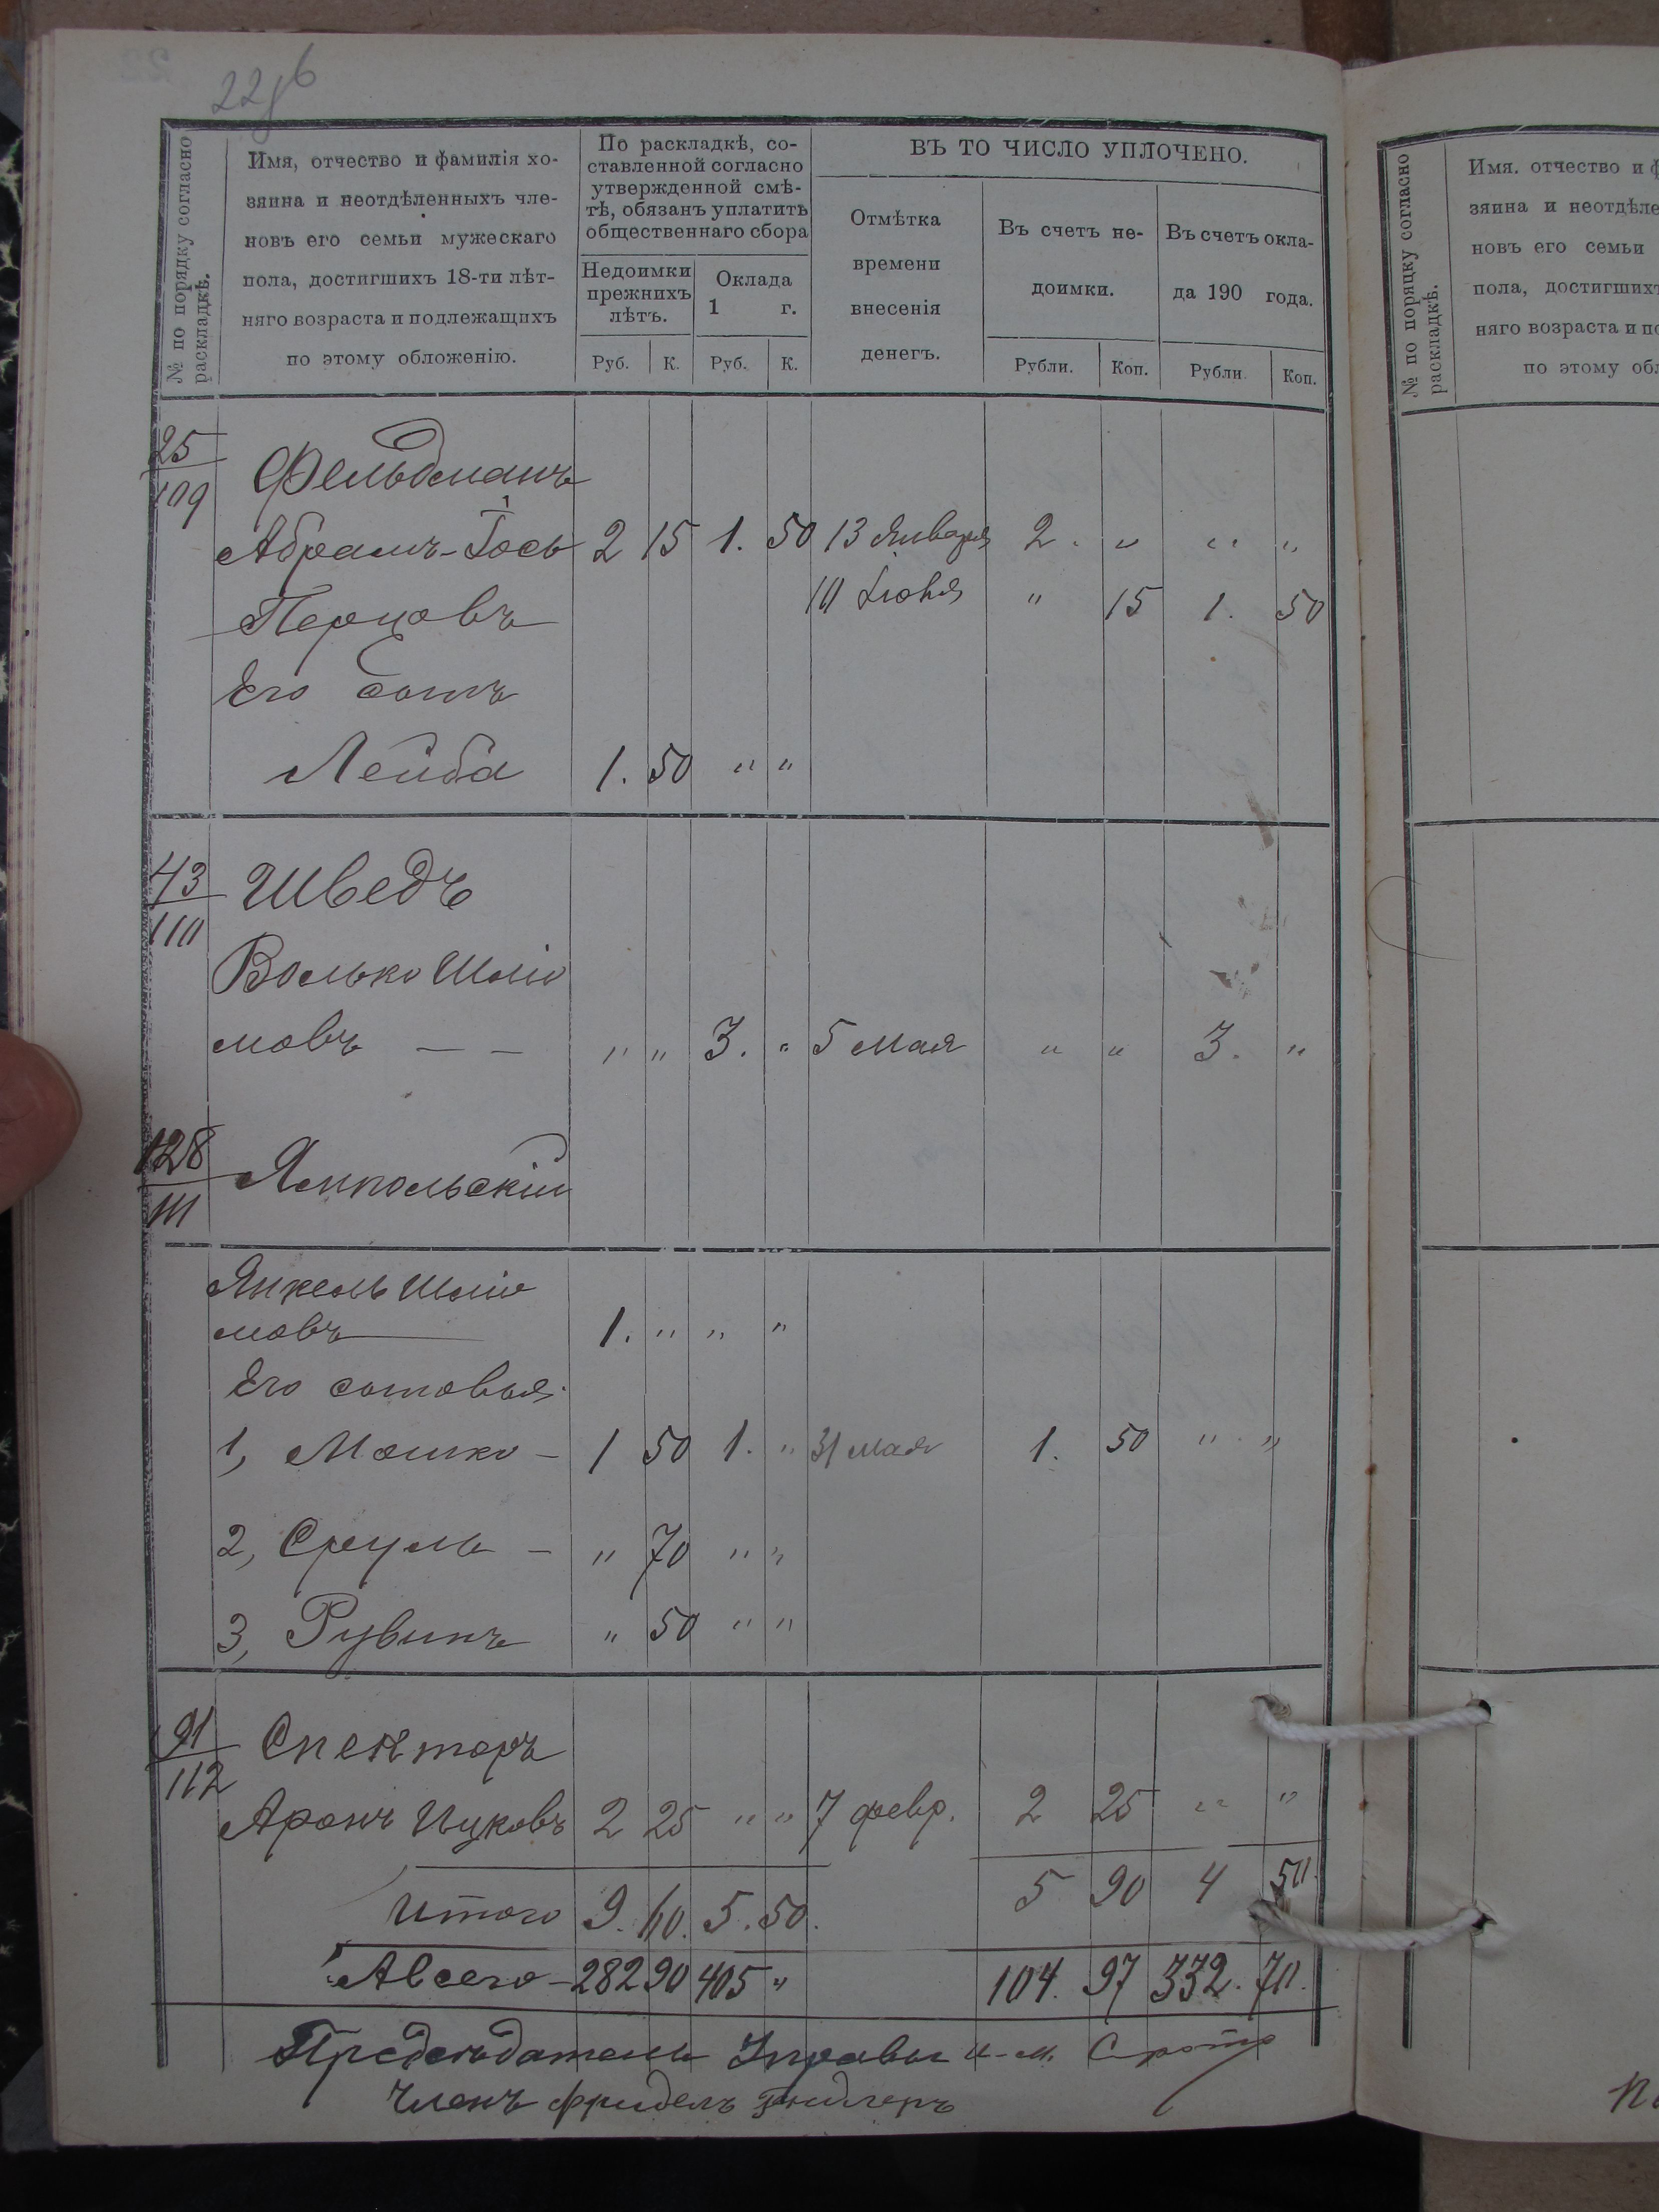 22об
№ по порядку согласно раскладкѣ.
Имя, отчество и фамилія хо-
зяина и неотдѣленныхъ чле-
новъ его семьи мужескаго
пола, достигшихъ 18-ти лѣт-
няго возраста и подлежащихъ
по этому обложенію.
По раскладкѣ, со-
ставленной согласно
утвержденной смѣ-
тѣ, обязанъ уплатить
общественнаго сбора
Недоимки
прежнихъ
лѣтъ.
Оклада
1 г.
Руб. К. Руб. К.
ВЪ ТО ЧИСЛО УПЛОЧЕНО.
Отмѣтка
времени
внесенія
денегъ.
Въ счетъ не-
доимки.
Въ счетъ окла-
да 190 года.
Рубли. Коп. Рубли. Коп.
25
109
Фельдманъ
Абрамъ-Іось 2 15 1. 50 13 Января 2. " " "
Перцовъ 10 Іюня " 15 1. 50
Его сынъ
Лейба 1. 50 " "
43
110
Шведъ
Волько Шліо
мовъ — — " " 3. " 5 Мая " " 3. "
128
111
Ямпольскій
Янкель Шліо
мовъ 1. " " "
Его сыновья:
1, Мошко - 1 50 1. " 31 мая 1. 50 " "
2, Сруль - " 70 " "
3, Рувинъ " 50 " "
91
112
Спекторъ
Аронъ Ицковъ 2 25 " " 7 февр. 2 25 " "
Итого 9. 60. 5. 50. 5 90 4 50.
А всего - 282 90 405 " 104. 97 332. 70.
Предсѣдатель Управы
Членъ Фридель
№ по порядку согласно раскладкѣ.
Имя. отчество и ф
зяина и неотдѣле
новъ его семьи
пола, достигшихъ
няго возраста и по
по этому обл